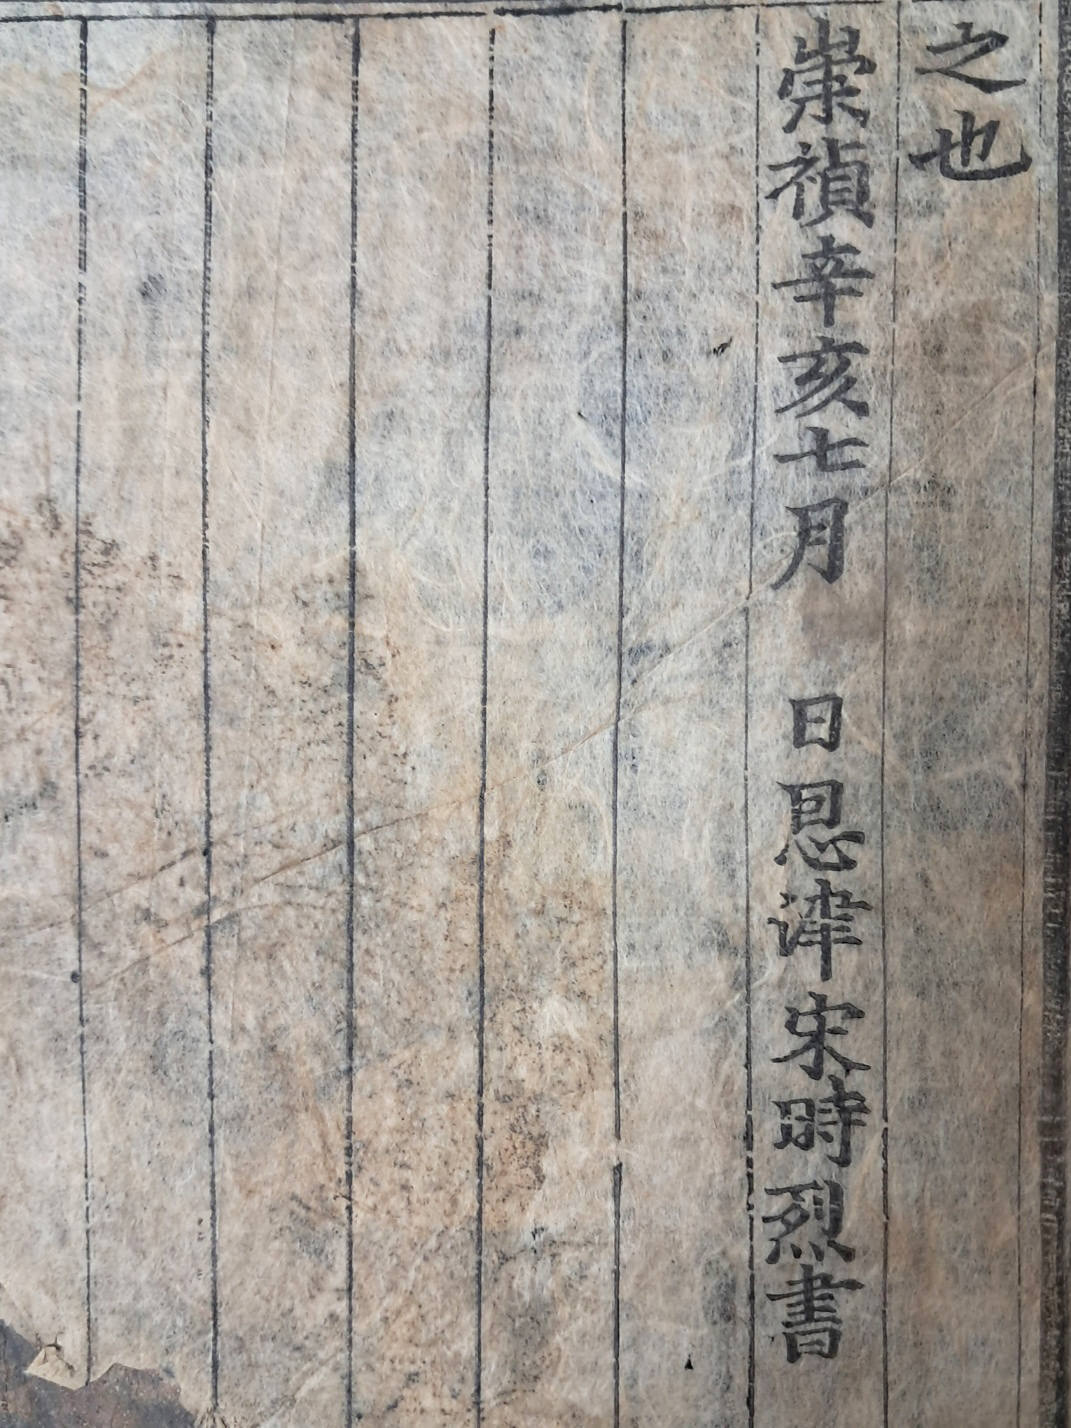 之也
崇禎辛亥七月 日恩津宋時烈書